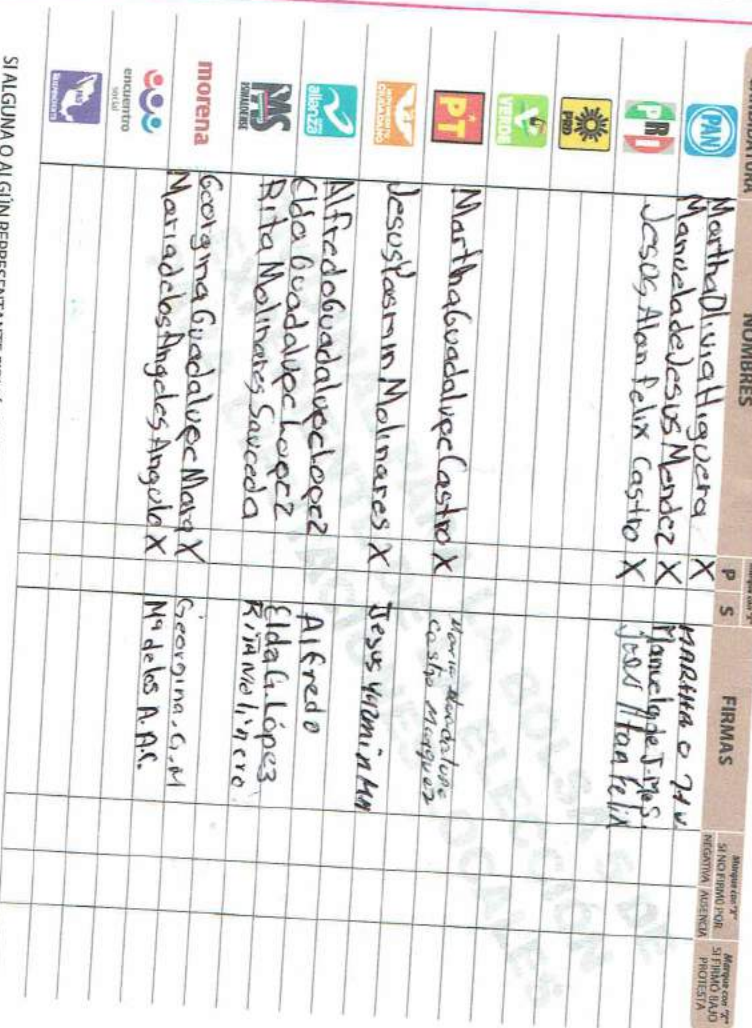 NOMBRES P S FIRMAS
Marque con "X" SI NO FIRMÓ POR NEGATIVA AUSENCIA
Marque con "X" SI FIRMÓ BAJO PROTESTA
PAN Martha Olivia Higuera X MARTHA O
Manuela de Jesus Mendez X Manuela de J. Mes.
PRI Jesus Alan Felix Castro X Felix
PRD
VERDE
PT Martha Guadalupe Castro X Maria Guadalupe castro Marquez
MOVIMIENTO CIUDADANO Jesus Yasmin Molinares X Jesus Yazmin MM
alianza Alfredo Guadalupe Lopez Alfredo
Elda Guadalupe Lopez Elda G. López
PAS SINALOENSE Rita Molinares Sauceda Rita Molinero
morena Georgina Guadalupe Mara X Georgina. G. M
encuentro social Maria de los Angeles Angulo X Mª de los A. A.C.
INDEPENDIENTE
SI ALGUNA O ALGÚN REPRESENTANTE
ORIGINAL PARA LA BOLSA
EXPEDIENTE DE LA ELECCIÓN
DIPUTACIONES LOCALES